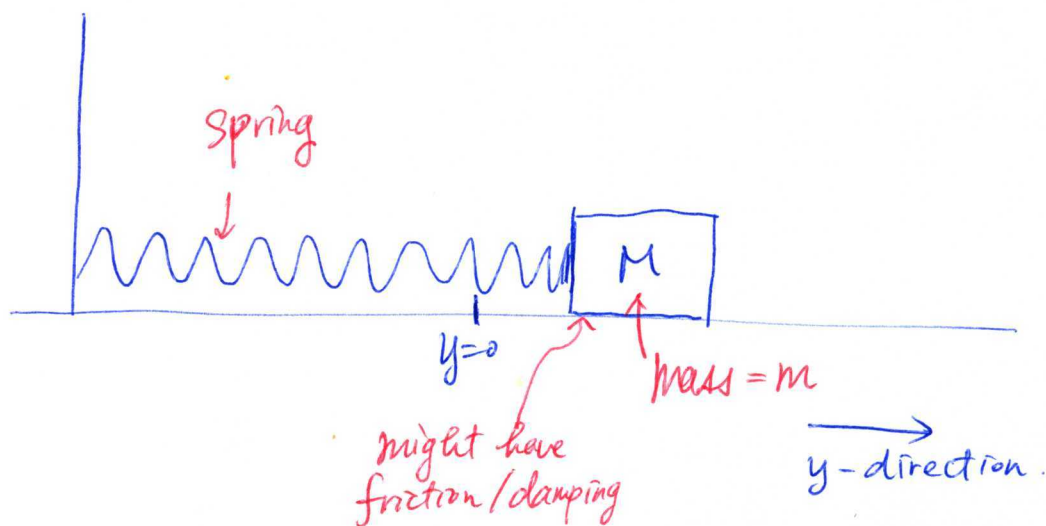 spring
M
y=0
mass = m
might have
friction/damping
y-direction.